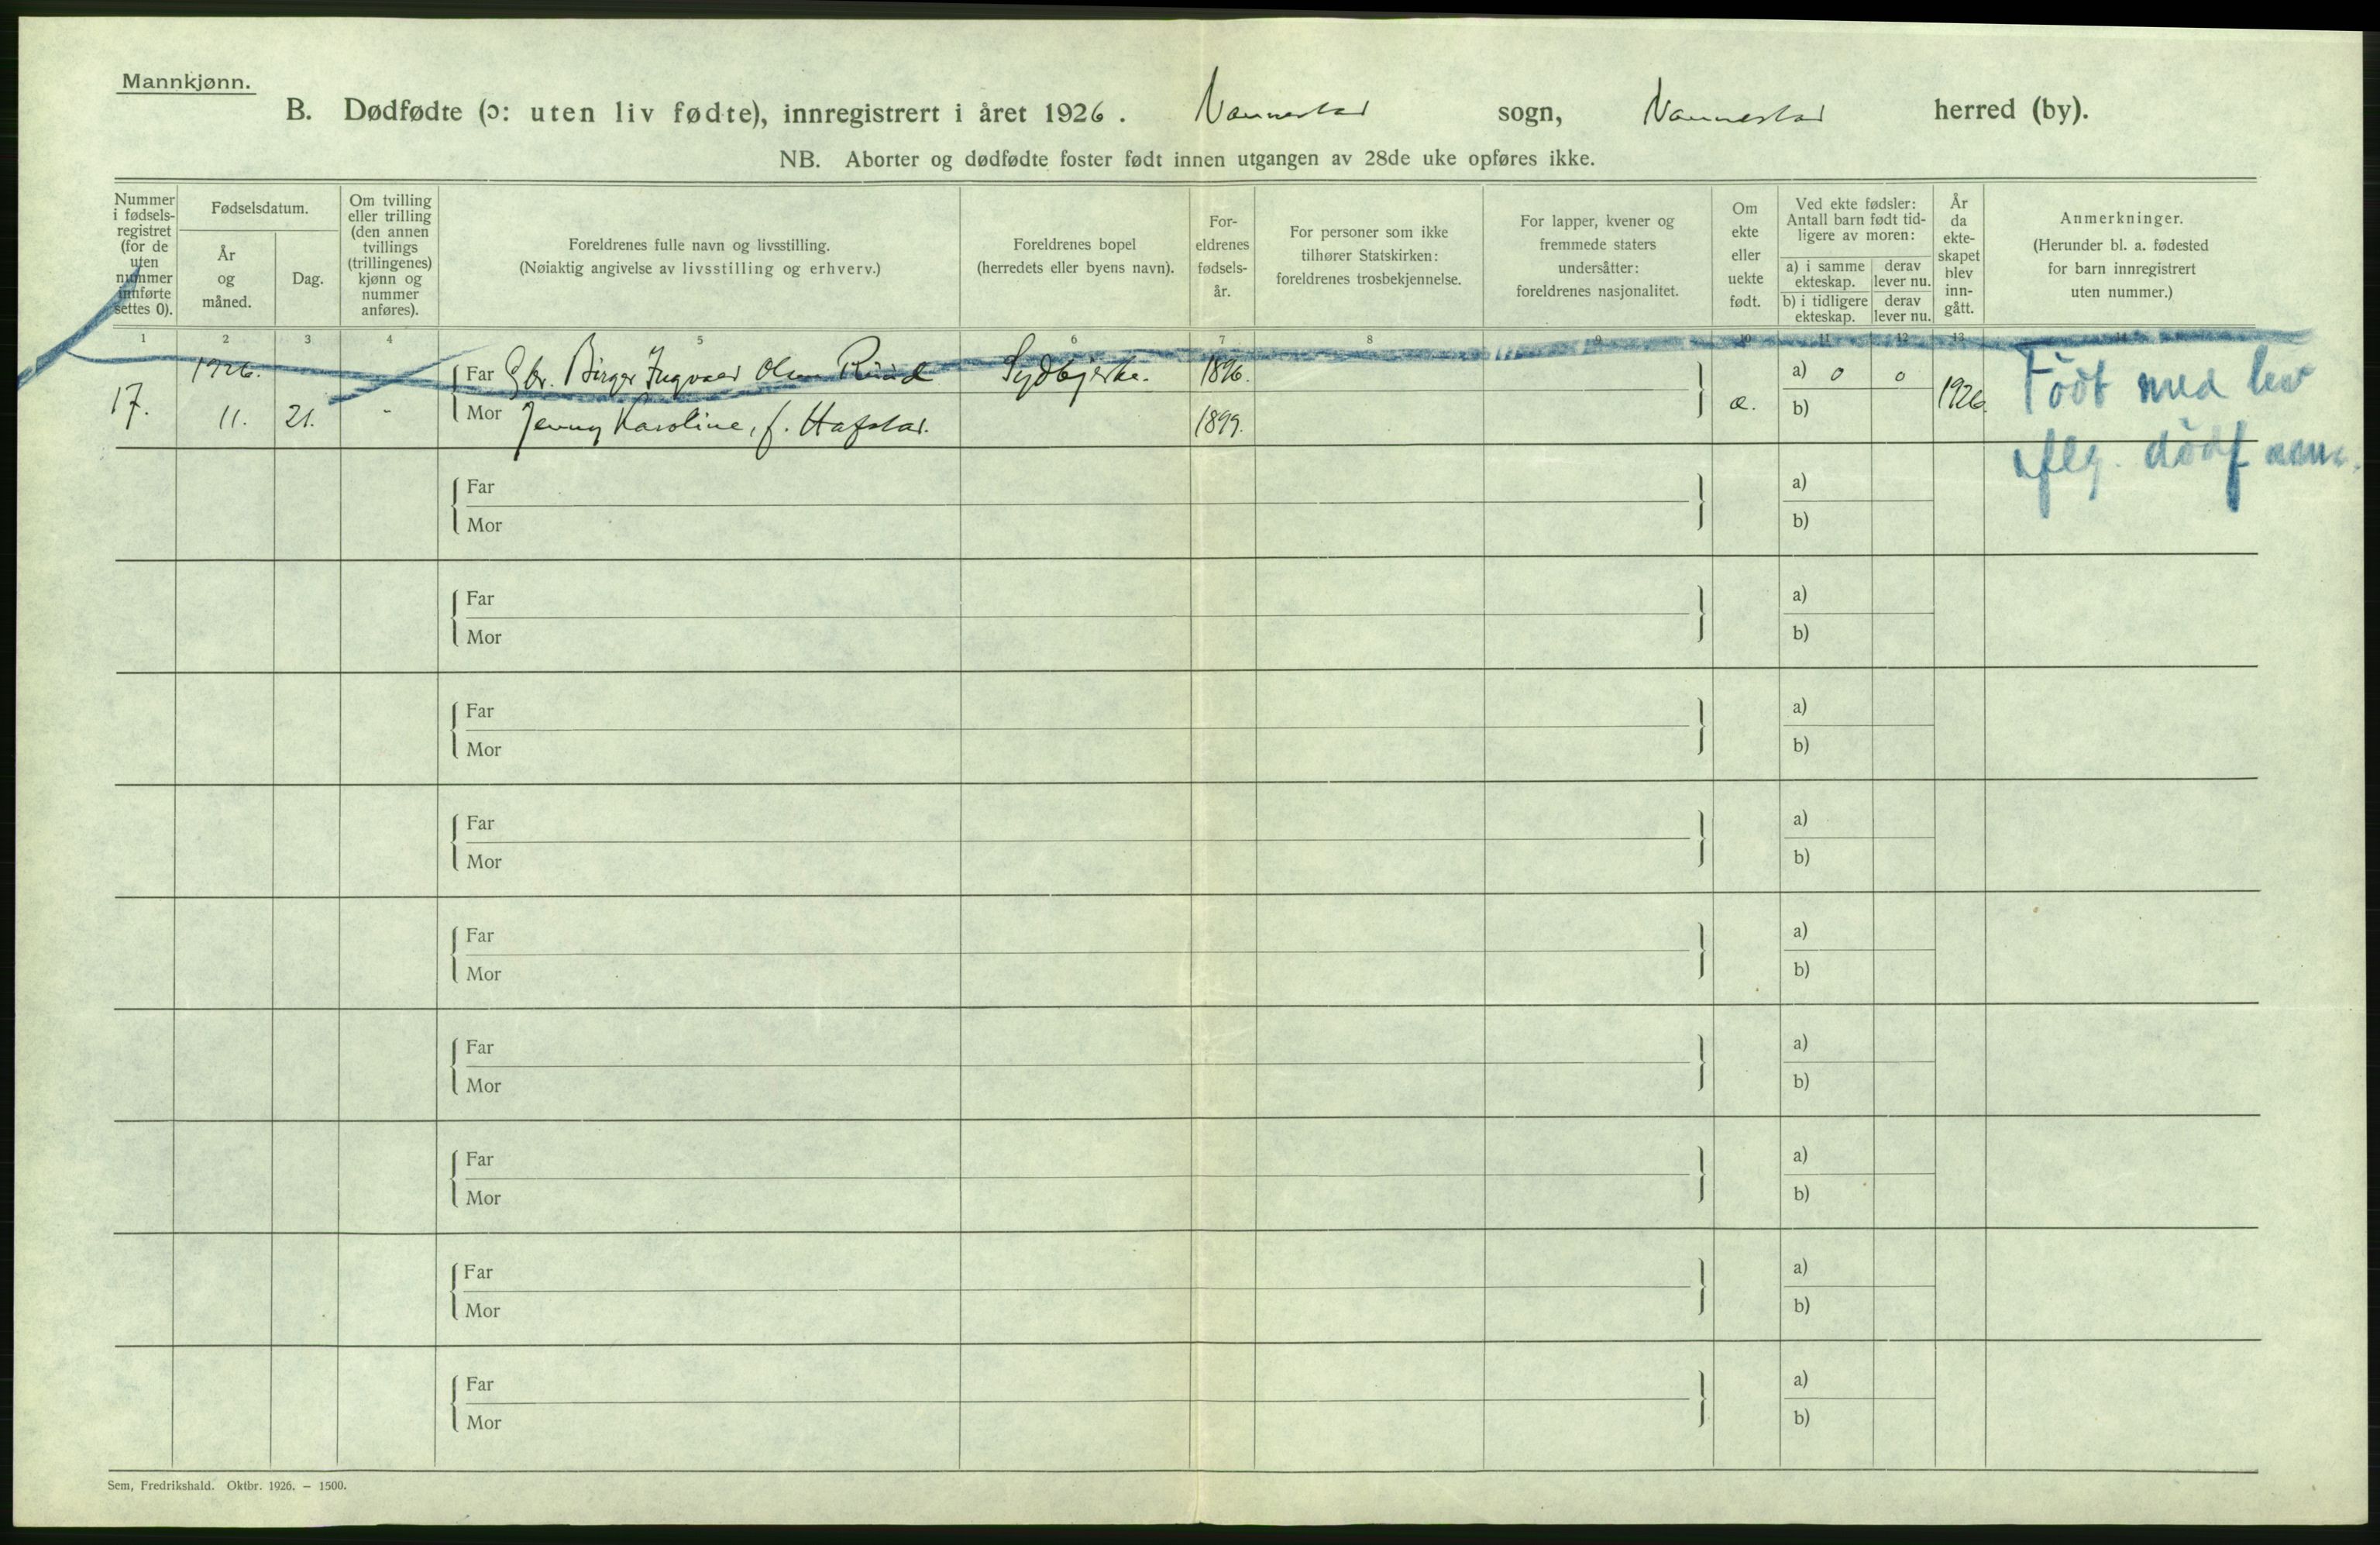 Mannkjønn.
B. Dødfødte (ɔ: uten liv fødte), innregistrert i året 1926. Nannestad sogn, Nannestad herred (by).
NB. Aborter og dødfødte foster født innen utgangen av 28de uke opføres ikke.
Nummer
i fødsels-
registret
(for de
uten
nummer
innførte
settes 0).
Fødselsdatum.
År
og
måned.
Dag.
Om tvilling
eller trilling
(den annen
tvillings
(trillingenes)
kjønn og
nummer
anføres).
Foreldrenes fulle navn og livsstilling.
(Nøiaktig angivelse av livsstilling og erhverv.)
Foreldrenes bopel
(herredets eller byens navn).
For-
eldrenes
fødsels-
år.
For personer som ikke
tilhører Statskirken:
foreldrenes trosbekjennelse.
For lapper, kvener og
fremmede staters
undersåtter:
foreldrenes nasjonalitet.
Om
ekte
eller
uekte
født.
Ved ekte fødsler:
Antall barn født tid-
ligere av moren:
a) i samme
ekteskap.
derav
lever nu.
b) i tidligere
ekteskap.
derav
lever nu.
År
da
ekte-
skapet
blev
inn-
gått.
Anmerkninger.
(Herunder bl. a. fødested
for barn innregistrert
uten nummer.)
1 2 3 4 5 6 7 8 9 10 11 12 13 14
1926.
Far Gbr. Birger Ingvald Olsen Ruud
1896.
a) 0 0
Født med liv
17.
11. 21. -
Mor Jenny Karoline, f. Hafstad.
1899.
b)
1926.
iflg. dødf
Far a)
Mor b)
Far a)
Mor b)
Far a)
Mor b)
Far a)
Mor b)
Far a)
Mor b)
Far a)
Mor b)
Far a)
Mor b)
Far a)
Mor b)
Far a)
Mor b)
Sem, Fredrikshald. Oktbr. 1926. – 1500.